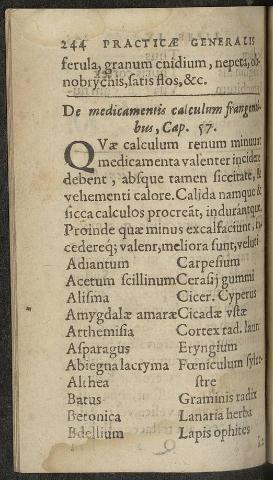 244 PRACTICÆ GENERALIS
ferula, granum cnidium, nepeta, ob-
nobrychis, satis flos, &c.
De medicamentis calculum frangenti-
bus, Cap. 57.
QVæ calculum renum minuunt
medicamenta valenter incidere
debent, absque tamen siccitate, &
vehementi calore. Calida namque &
sicca calculos procreāt, indurāntque.
Proinde quæ minus excalfaciunt,
cedereq; valent, meliora sunt, veluti
Adiantum Carpesium
Acetum scillinum Cerasij gummi
Alisma Cicer. Cyperus
Amygdalæ amaræ Cicadæ vstæ
Arthemisia Cortex rad. laur.
Asparagus Eryngium
Abiegna lacryma Fœniculum sylue-
Althea stre
Batus Graminis radix
Betonica Lanaria herba
Bdellium Lapis ophites
Q